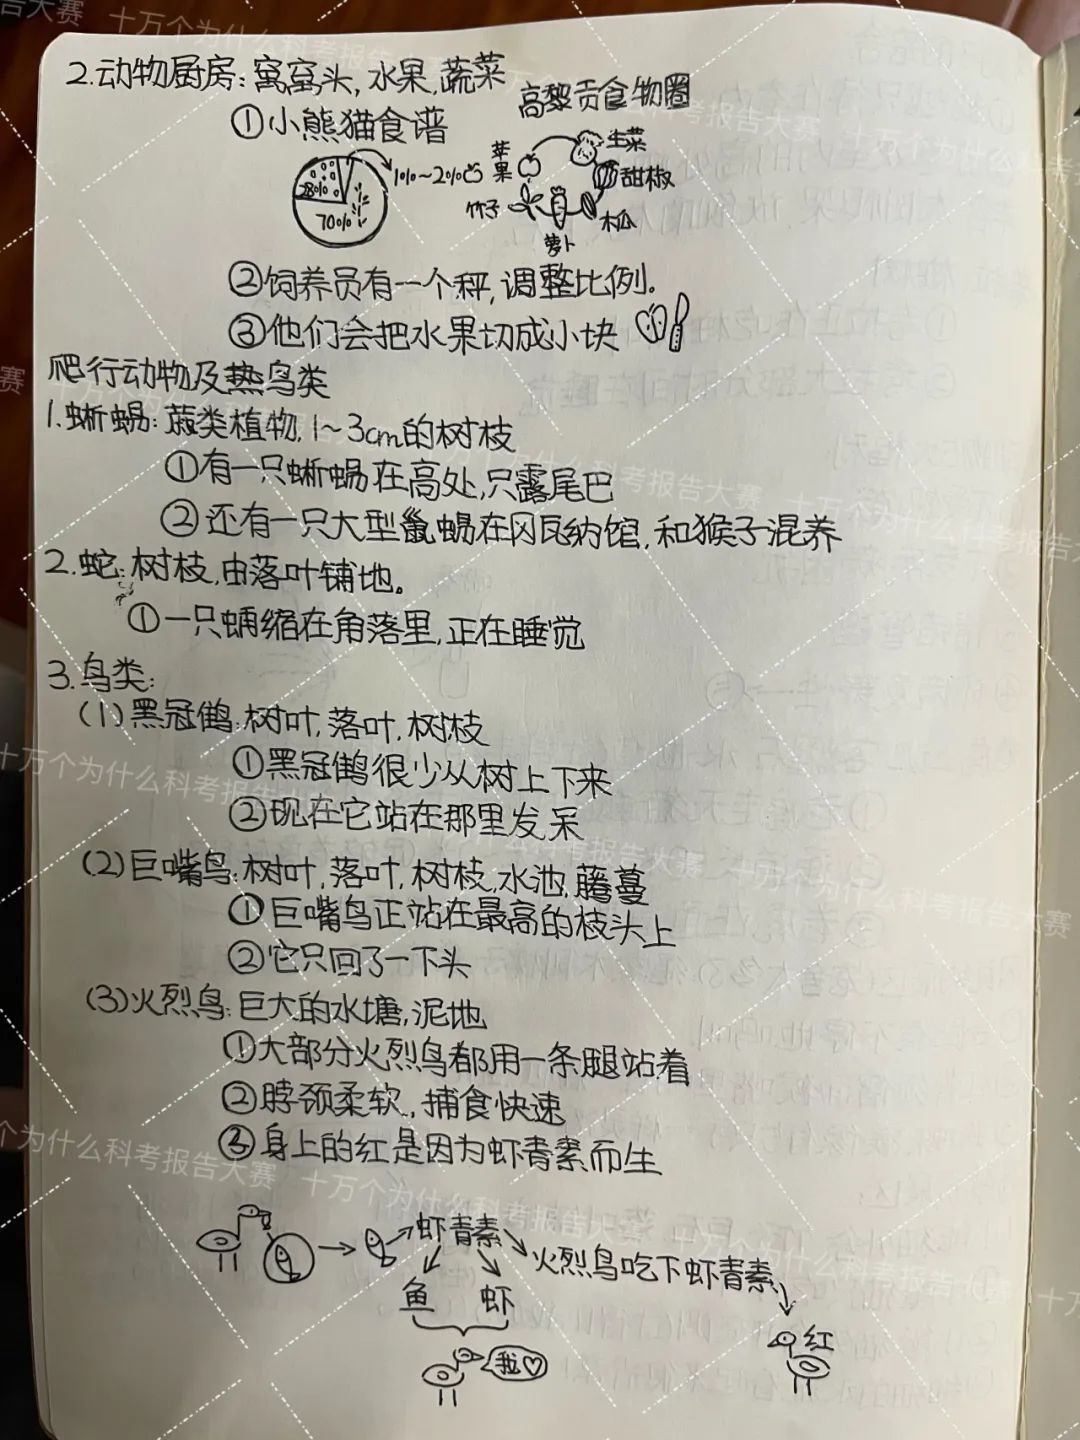 2.动物厨房:窝窝头,水果,蔬菜
①小熊猫食谱
高黎贡食物圈
28% 70% 10%~20%
苹果 生菜 甜椒 木瓜 萝卜 竹子
②饲养员有一个秤,调整比例.
③他们会把水果切成小块
爬行动物及热鸟类
1.蜥蜴:蕨类植物,1~3cm的树枝
①有一只蜥蜴在高处,只露尾巴
②还有一只大型鬣蜴在冈瓦纳馆,和猴子混养
2.蛇:树枝,由落叶铺地。
①一只蝻缩在角落里,正在睡觉
3.鸟类:
(1)黑冠鹤:树叶,落叶,树枝
①黑冠鹤很少从树上下来
②现在它站在那里发呆
(2)巨嘴鸟:树叶,落叶,树枝,水池,藤蔓
①巨嘴鸟正站在最高的枝头上
②它只回了一下头
(3)火烈鸟:巨大的水塘,泥地
①大部分火烈鸟都用一条腿站着
②脖颈柔软,捕食快速
③身上的红是因为虾青素而生
虾青素
火烈鸟吃下虾青素
鱼 虾
红
我♡
十万个为什么科考报告大赛